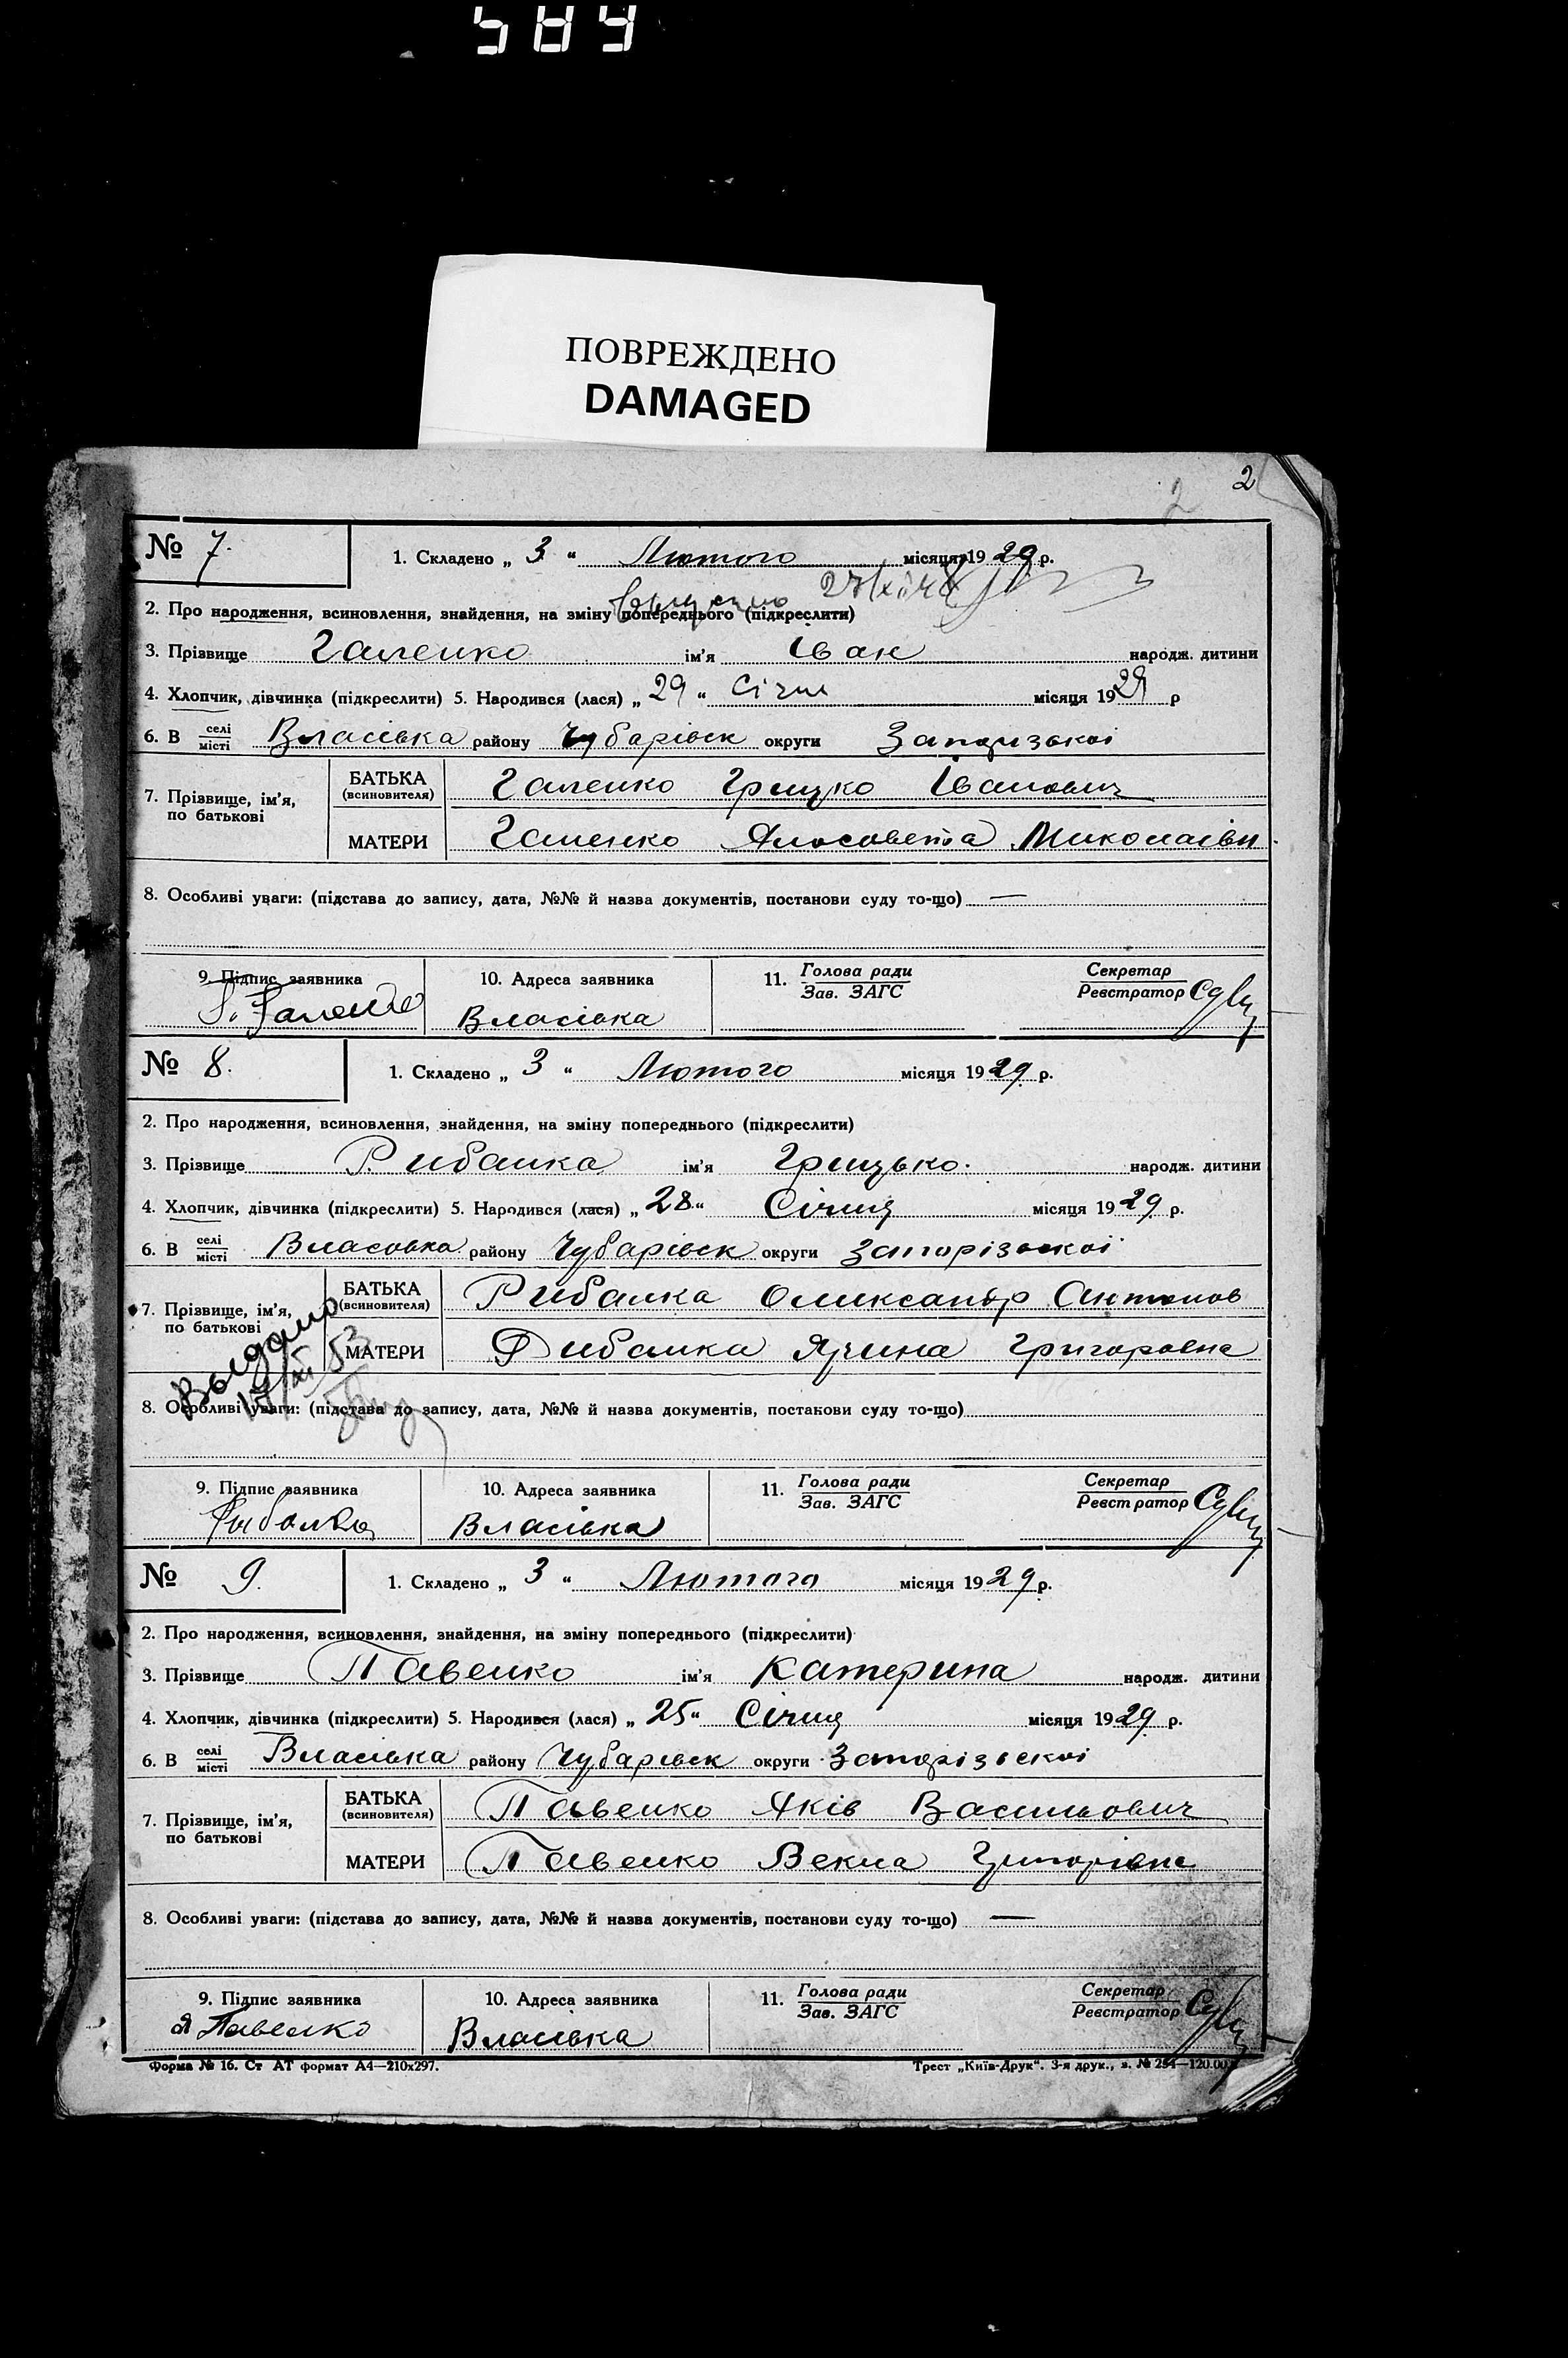 589
ПОВРЕЖДЕНО
DAMAGED
2 2
№ 7. 1. Складено „ 3 “ Лютого місяця 1929 р.
2. Про народження, всиновлення, знайдення, на зміну попереднього (підкреслити)
3. Прізвище Галенко ім'я Іван народж. дитини
4. Хлопчик, дівчинка (підкреслити) 5. Народився (лася) „ 29 “ Січня місяця 1929 р
6. В селі місті Власівка району Чубарівск округи Запорізькоі
7. Прізвище, ім'я, по батькові
БАТЬКА (всиновителя) Галенко Грицко Іванович
МАТЕРИ Галенко Ялосовета Миколаівн
8. Особливі уваги: (підстава до запису, дата, №№ й назва документів, постанови суду то-що) —
9. Підпис заявника 10. Адреса заявника 11. Голова ради Зав. ЗАГС Секретар Реєстратор
Галенко Власівка
№ 8. 1. Складено „ 3 “ Лютого місяця 1929 р.
2. Про народження, всиновлення, знайдення, на зміну попереднього (підкреслити)
3. Прізвище Рибалка ім'я Грицько. народж. дитини
4. Хлопчик, дівчинка (підкреслити) 5. Народився (лася) „ 28 “ Січня місяця 1929 р.
6. В селі місті Власовка району Чубарівск округи Запорізьскоі
7. Прізвище, ім'я, по батькові
БАТЬКА (всиновителя) Рибалка Олександр Антонов
МАТЕРИ Рибалка Ярина Григоровна
Выдано
8. Особливі уваги: (підстава до запису, дата, №№ й назва документів, постанови суду то-що)
9. Підпис заявника 10. Адреса заявника 11. Голова ради Зав. ЗАГС Секретар Реєстратор
Рыбалка Власівка
№ 9. 1. Складено „ 3 “ Лютого місяця 1929 р.
2. Про народження, всиновлення, знайдення, на зміну попереднього (підкреслити)
3. Прізвище Павенко ім'я Катерина народж. дитини
4. Хлопчик, дівчинка (підкреслити) 5. Народився (лася) „ 25 “ Січня місяця 1929 р.
6. В селі місті Власівка району Чубарівск округи Запорізьскоі
7. Прізвище, ім'я, по батькові
БАТЬКА (всиновителя) Павенко Яків Васильович
МАТЕРИ Павенко Векла Григорівна
8. Особливі уваги: (підстава до запису, дата, №№ й назва документів, постанови суду то-що) —
9. Підпис заявника 10. Адреса заявника 11. Голова ради Зав. ЗАГС Секретар Реєстратор
Я Павенко Власівка
Форма № 16. Ст АТ формат А4—210х297. Трест „Київ-Друк“. 3-я друк., з. № 254—120.00